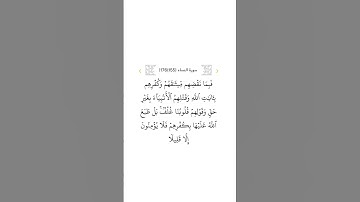 سورة النساء (155) (176)
فَبِمَا نَقْضِهِم مِّيثَٰقَهُمْ وَكُفْرِهِم
بِـَٔايَٰتِ ٱللَّهِ وَقَتْلِهِمُ ٱلْأَنۢبِيَآءَ بِغَيْرِ
حَقٍّ وَقَوْلِهِمْ قُلُوبُنَا غُلْفٌۢ بَلْ طَبَعَ
ٱللَّهُ عَلَيْهَا بِكُفْرِهِمْ فَلَا يُؤْمِنُونَ
إِلَّا قَلِيلًا